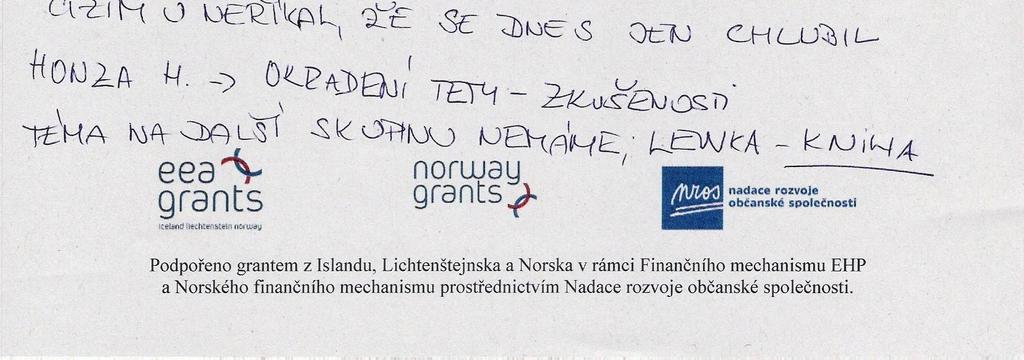 NEŘÍKAL, ŽE SE DNES JEN CHLUBIL
HONZA H. -> OKRADENÍ TETY - ZKUŠENOSTI
TÉMA NA DALŠÍ SKUPINU NEMÁME, LENKA - KNIHA
eea grants
iceland liechtenstein norway
norway grants
nros
nadace rozvoje
občanské společnosti
Podpořeno grantem z Islandu, Lichtenštejnska a Norska v rámci Finančního mechanismu EHP
a Norského finančního mechanismu prostřednictvím Nadace rozvoje občanské společnosti.